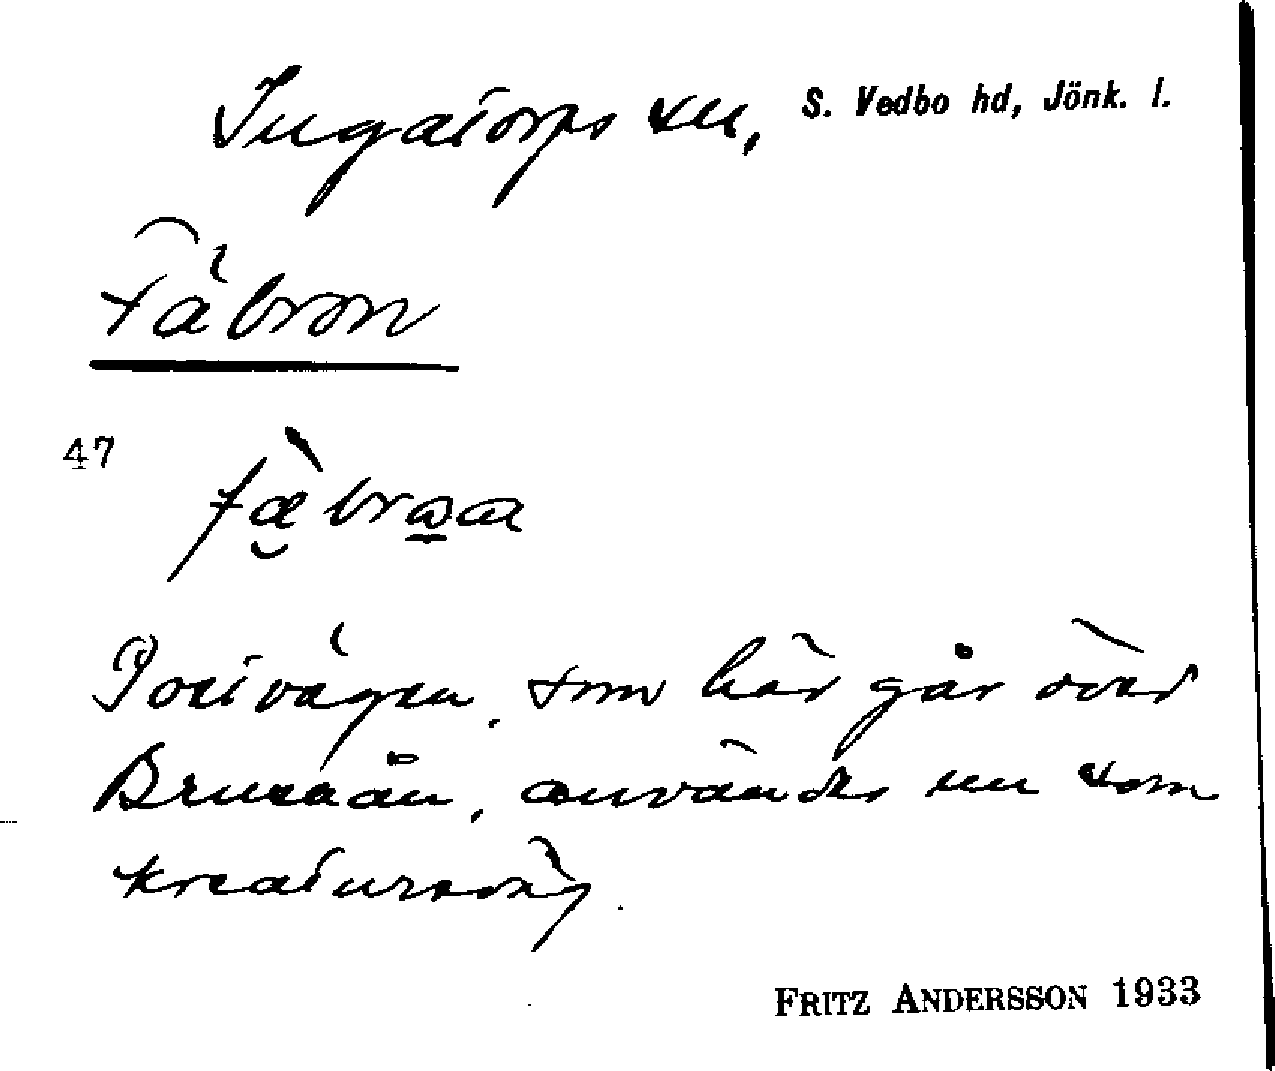 Ingatorps sn, S. Vedbo hd, Jönk. l.
Fäbron
47
Postvägen, som här går över
Brusaån, användes nu som
kreatursväg.
FRITZ ANDERSSON 1933